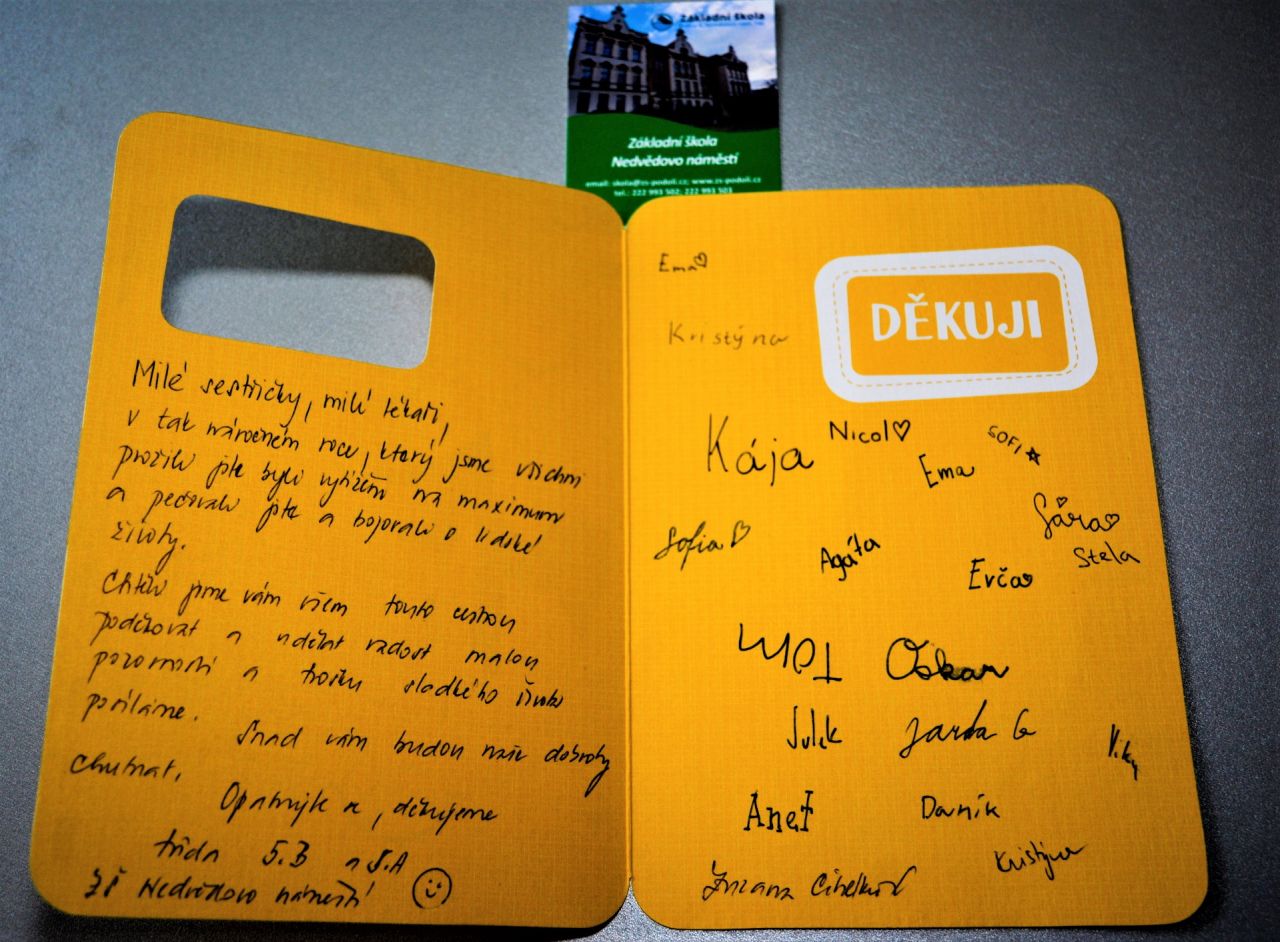 Základní škola
Základní škola
Nedvědovo náměstí
email: skola@zs-podoli.cz; www.zs-podoli.cz
tel.: 222 993 502; 222 993 503
Milé sestřičky, milí lékaři,
v tak náročném roce, který jsme všichni
prožili jste byli vytíženi na maximum
a pečovali jste a bojovali o lidské
životy.
Chtěli jsme vám všem touto cestou
poděkovat a udělat radost malou
pozorností a trošku sladkého života
posíláme.
Snad vám budou naše dobroty
chutnat.
Opatrujte se, děkujeme
třída 5.B a 5.A
ZŠ Nedvědovo náměstí
DĚKUJI
Ema
Kristýna
Kája
Nicol
Ema
SOFI
Sára
Sofia
Agáta
Stela
Evča
Oskar
Julek
Jarda G
Viky
Anet
Daník
Kristýna
Zuzana